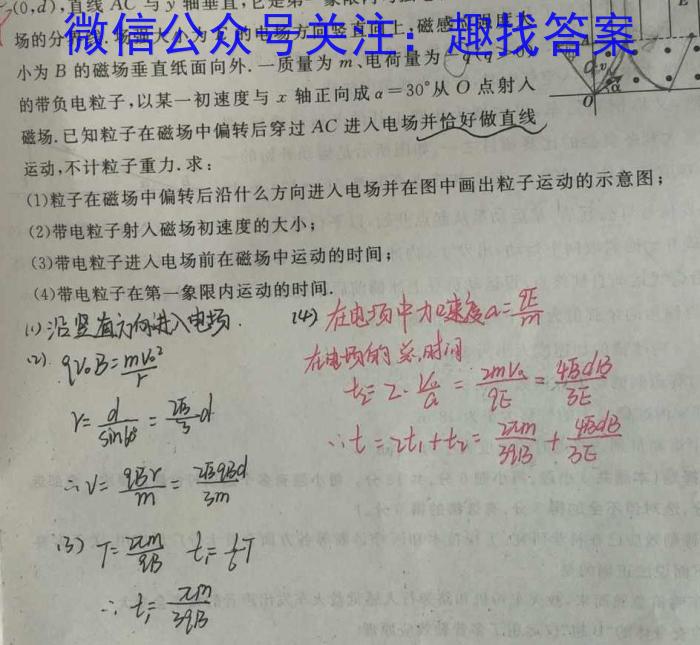 (0,d),直线AC与y轴垂直,它是第一象限内
场的分界线.场强大小为E的电场方向竖直向上,磁感应强度大
微信公众号关注：趣找答案
小为B的磁场垂直纸面向外.一质量为m、电荷量为-q(q>0)
的带负电粒子,以某一初速度与x轴正向成α=30°从O点射入
磁场.已知粒子在磁场中偏转后穿过AC进入电场并恰好做直线
运动,不计粒子重力.求:
(1)粒子在磁场中偏转后沿什么方向进入电场并在图中画出粒子运动的示意图;
(2)带电粒子射入磁场初速度的大小;
(3)带电粒子进入电场前在磁场中运动的时间;
(4)带电粒子在第一象限内运动的时间.
E
A
v
α
O
(1)沿竖直方向进入电场.
(2). qv₀B=mv₀²/r
r=d/sin60°=2√3/3 d
∴v=qBr/m=2√3qBd/3m
(3) T=2πm/qB t₁=1/6T
∴t₁=πm/3qB
(4)在电场中加速度a=qE/m
在电场的总时间
t₂=2·v₀/a=2mv₀/qE=4√3dB/3E
∴t=2t₁+t₂=2πm/3qB+4√3dB/3E